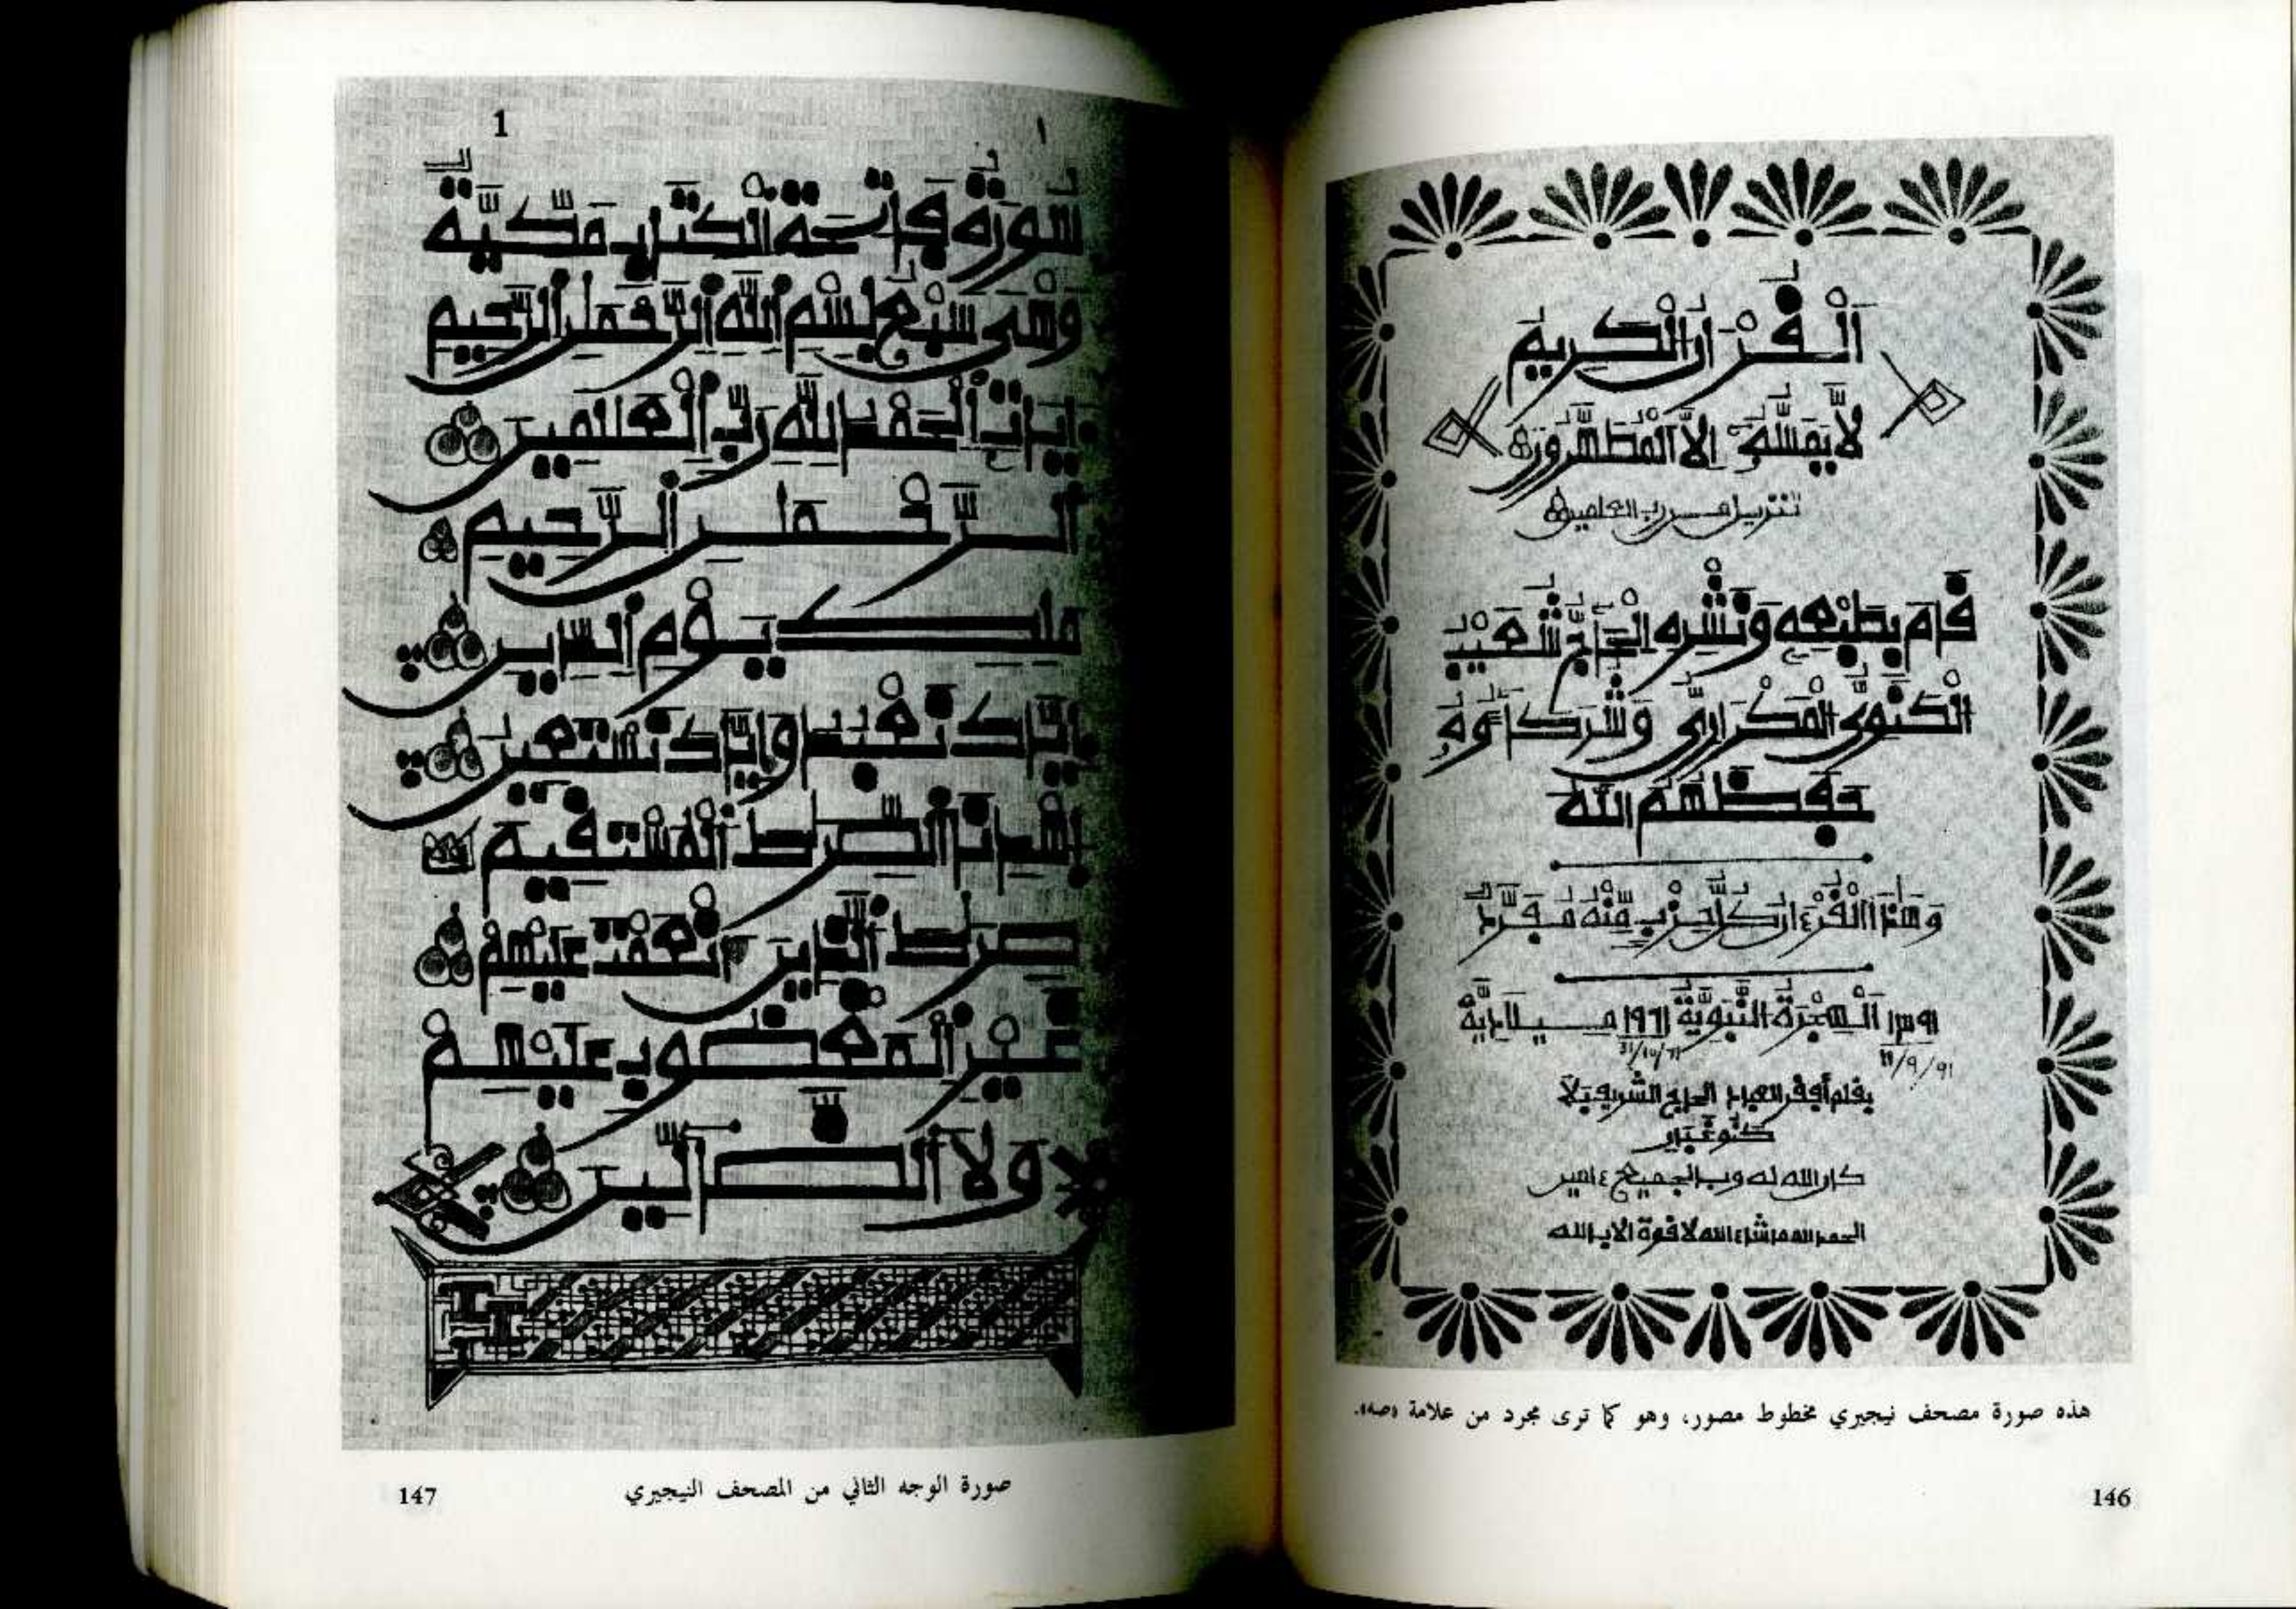 اَلْقُرْءَانُ الْكَرِيمُ
لَّا يَمَسُّهُ إِلَّا الْمُطَهَّرُونَ
تنزيل من رب العلمين
قَامَ بِطَبْعِهِ وَنَشْرِهِ الْحَاجُّ شُعَيْبُ
الْكَنَوِيُّ الْمَكْرَارِيُّ وَشُرَكَاؤُهُ
حَفِظَهُمُ اللَّهُ
وَهَذَا الْقُرْءَانُ كُلُّ حِزْبٍ مِّنْهُ مُفَرَّدٌ
١٣٩١ اَلْهِجْرَةُ النَّبَوِيَّةُ ١٩٧١ مِيلَادِيَّةُ
31/10/71
11/9/91
بقلم أفقر العباد الحاج الشريف بَلَا
كان الله له وبالجميع ءامين
الحمد لله ما شاء الله لا قوة إلا بالله
هذه صورة مصحف نيجيري مخطوط مصور، وهو كما ترى مجرد من علامة «صه».
146
1
١
سُورَةُ فَاتِحَةُ الْكِتَٰبِ مَكِّيَّةٌ
وَهْىَ سَبْعُ بِسْمِ اللَّهِ الرَّحْمَٰنِ الرَّحِيمِ
ءَايَاتٍ الْحَمْدُ لِلَّهِ رَبِّ الْعَٰلَمِينَ
الرَّحْمَٰنِ الرَّحِيمِ
مَلِكِ يَوْمِ الدِّينِ
إِيَّاكَ نَعْبُدُ وَإِيَّاكَ نَسْتَعِينُ
اِهْدِنَا الصِّرَٰطَ الْمُسْتَقِيمَ
صِرَٰطَ الَّذِينَ أَنْعَمْتَ عَلَيْهِمْ
غَيْرِ الْمَغْضُوبِ عَلَيْهِمْ
وَلَا الضَّالِّينَ
صورة الوجه الثاني من المصحف النيجيري
147